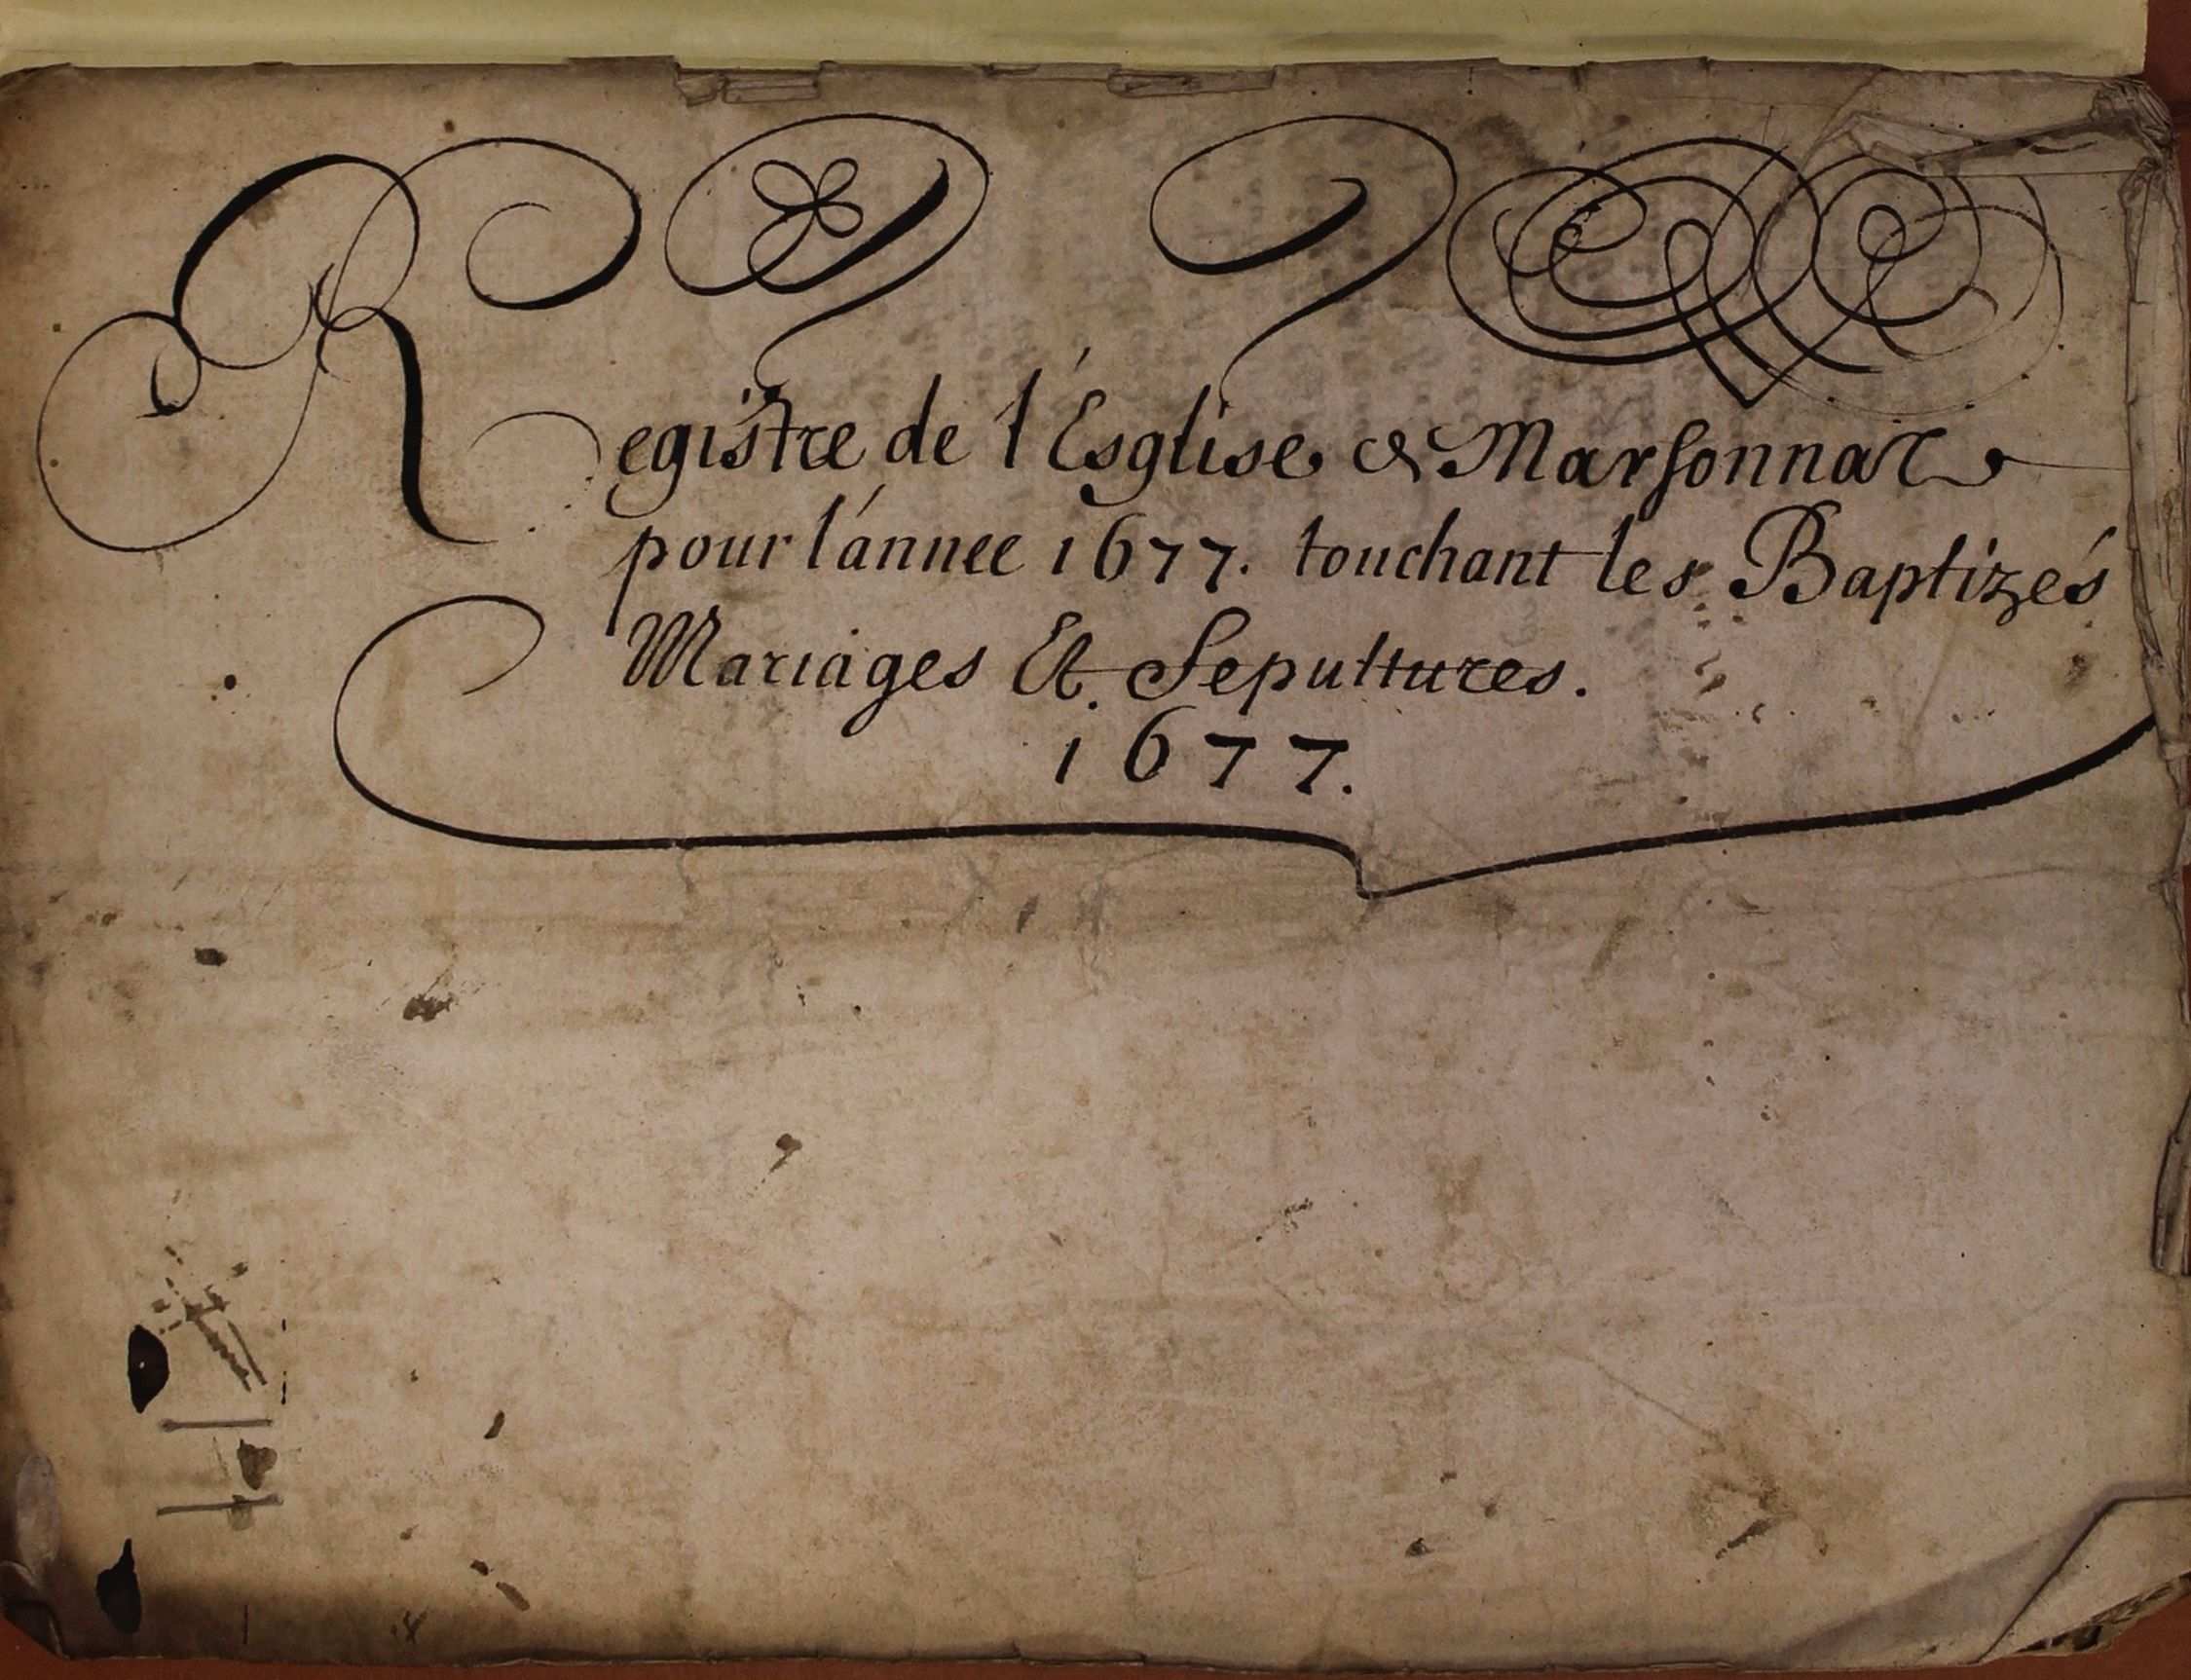 Registre de l'Esglise de Marsonnat
pour l'annee 1677. touchant les Baptizés
Mariages Et Sepultures.
1677.